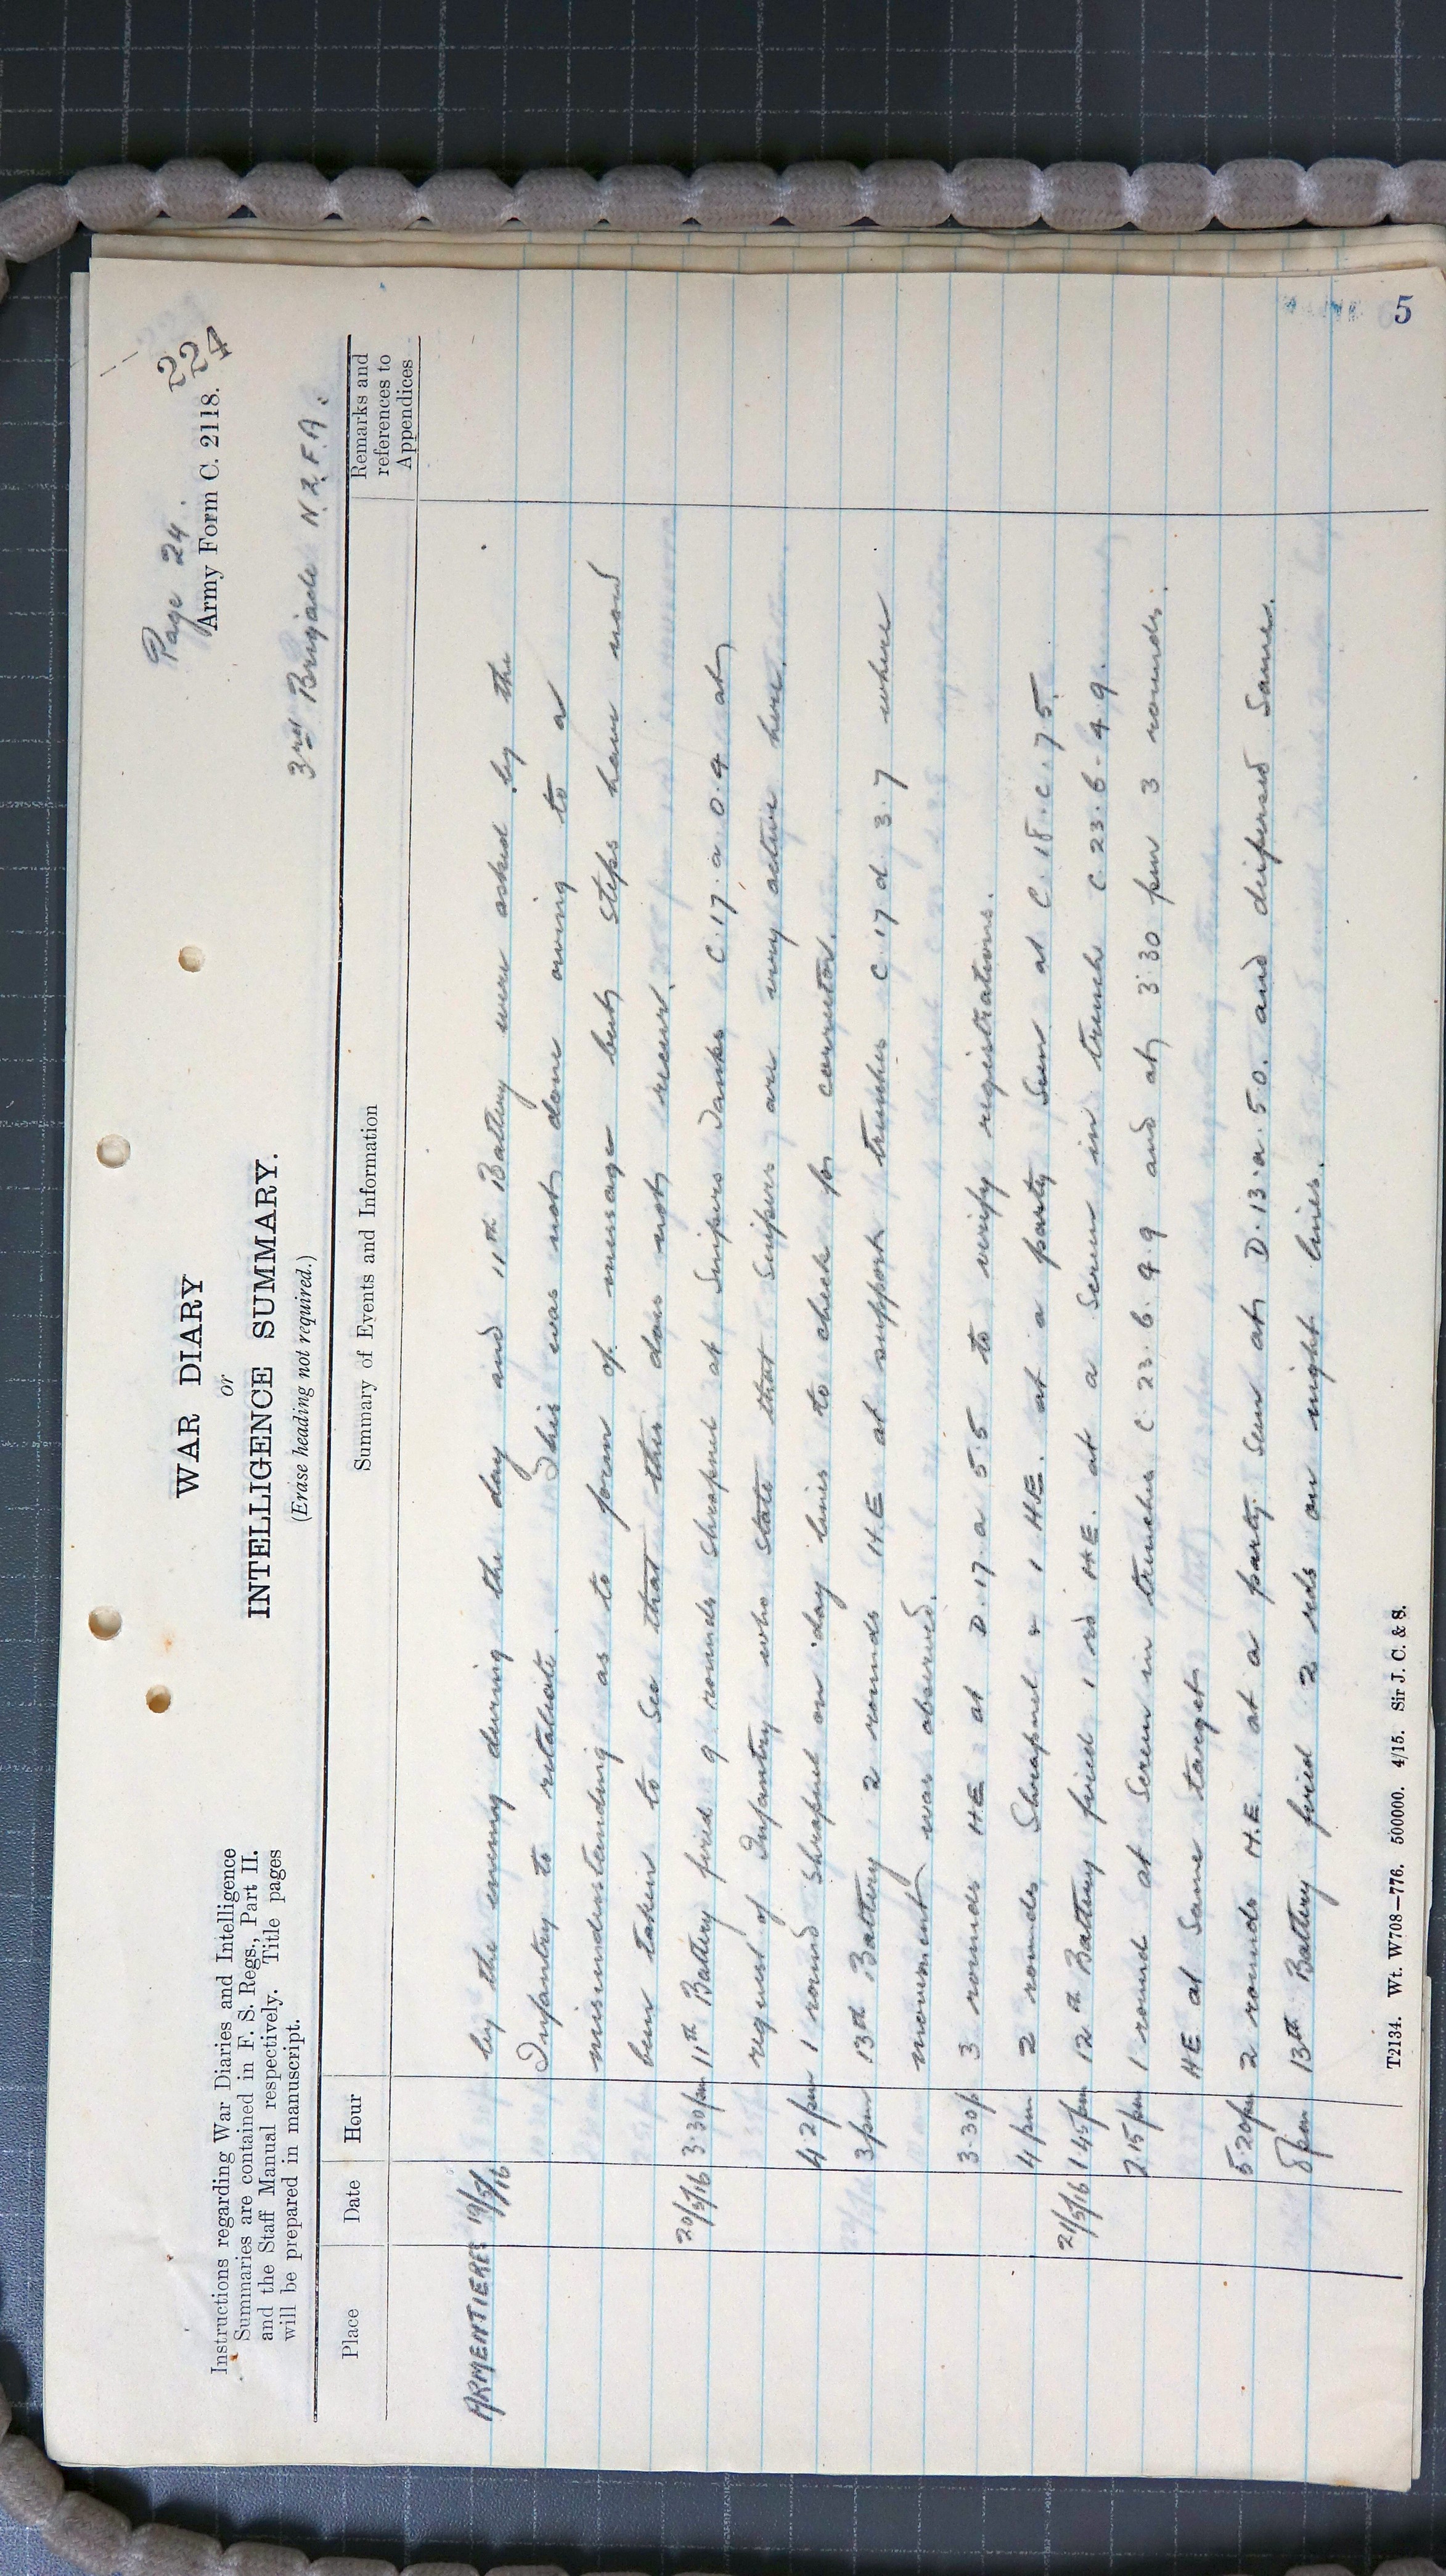 Page 24.
224
Army Form C. 2118.
WAR DIARY
or
INTELLIGENCE SUMMARY.
(Erase heading not required.)
Instructions regarding War Diaries and Intelligence
Summaries are contained in F. S. Regs., Part II.
and the Staff Manual respectively. Title pages
will be prepared in manuscript.
3rd Brigade N.Z.F.A.
Place Date Hour Summary of Events and Information Remarks and references to Appendices
ARMENTIERES 19/5/16 by the enemy during the day and 11th Battery were asked by the
Infantry to retaliate. This was not done owing to a
misunderstanding as to form of message but steps have now
been taken to see that this does not recur.
20/5/16 3.30pm 11th Battery fired 9 rounds shrapnel at Snipers Tanks C.17.a.0.4 at
request of Infantry who state that snipers are very active here.
4.2pm 1 round shrapnel on day lines to check for corrector.
3pm 13th Battery 2 rounds H.E at support trenches C.17 d 3.7 where
movement was observed.
3.30p 3 rounds HE at D.17.a 5.5 to verify registrations.
4pm 2 rounds Shrapnel & 1 H.E. at a party seen at C.18.c.7 5.
21/5/16 1 45pm 12th Battery fired 1 rd H.E. at a screen in trench C.23.b.4 9.
2.15pm 1 round at screen in trenches C.23.b.4.9 and at 3.30 pm 3 rounds.
HE at same target
5.20pm 2 rounds H.E. at a party seen at D.13.a.5.0. and dispersed same.
8pm 13th Battery fired 2 rds on night lines.
T2134. Wt. W708—776. 500000. 4/15. Sir J. C. & S.
5